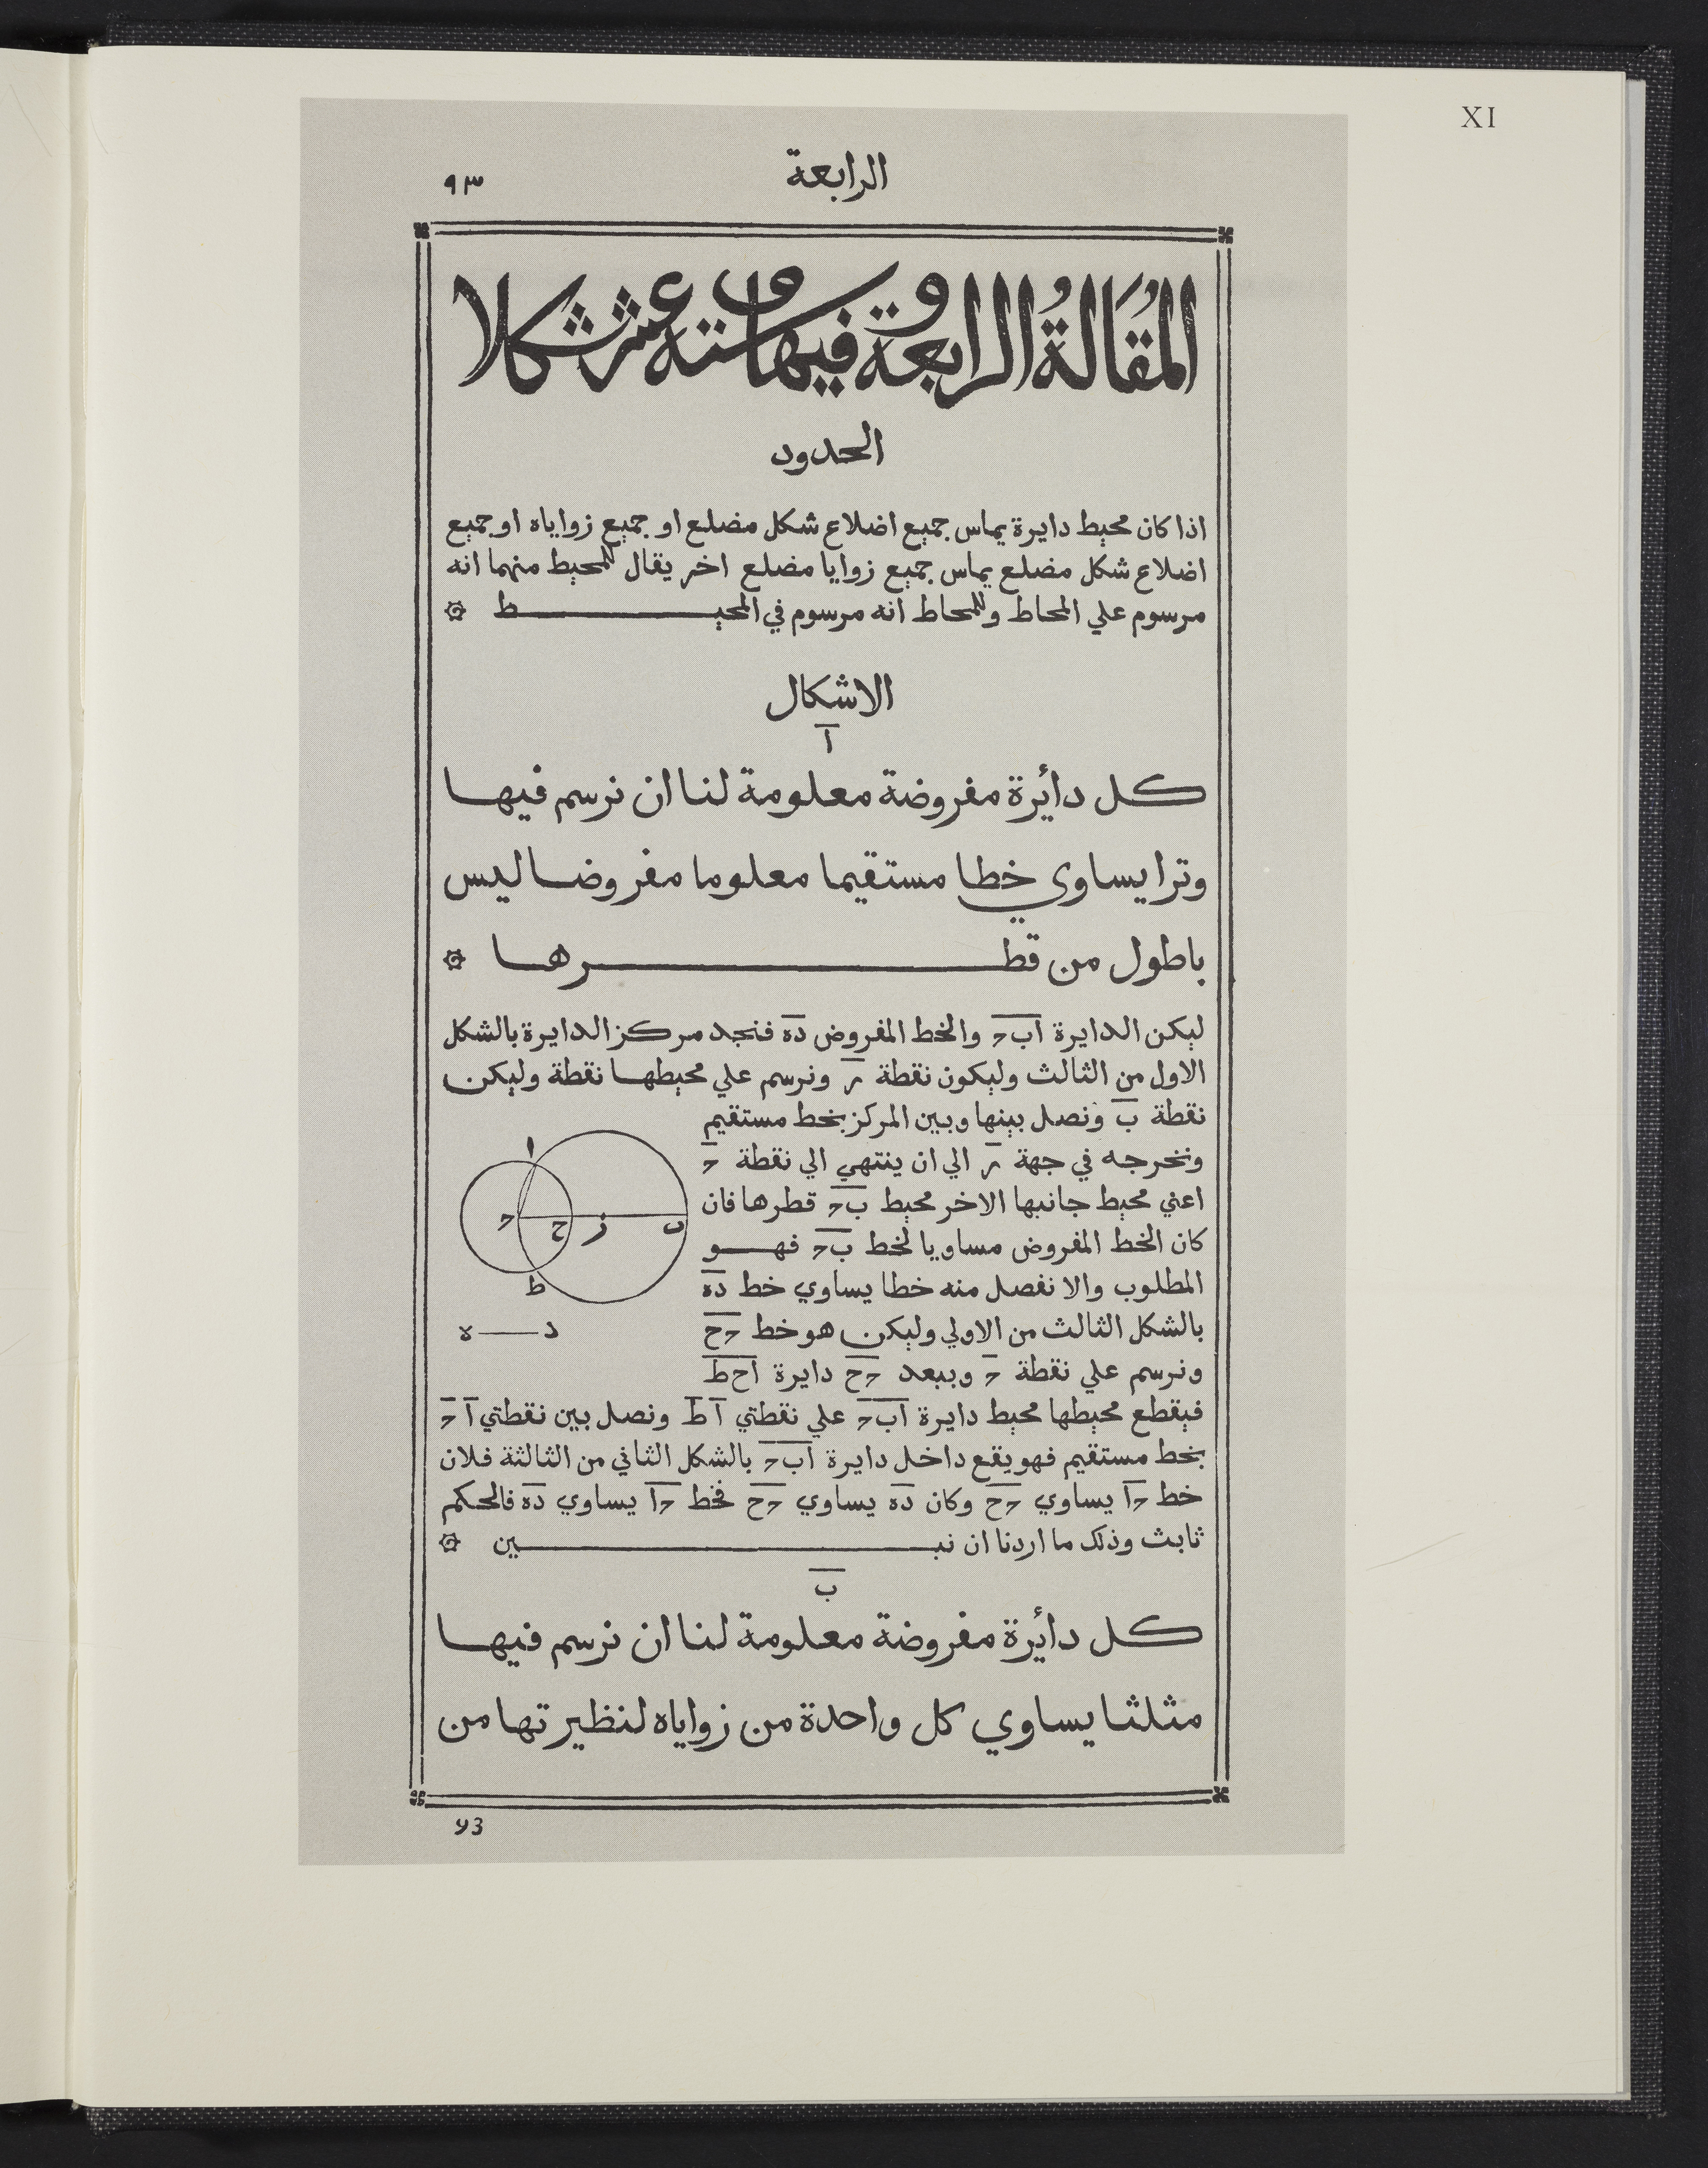 XI
الرابعة
٩٣
المَقَالَةُ الرابعة وفيها ستة عشر شكلا
الحدود
اذا كان محيط دايرة يماس جميع اضلاع شكل مضلع او جميع زواياه او جميع
اضلاع شكل مضلع يماس جميع زوايا مضلع اخر يقال للمحيط منهما انه
مرسوم علي المحاط وللمحاط انه مرسوم في المحيط
الاشكال
ا
كل دائرة مفروضة معلومة لنا ان نرسم فيها
وترا يساوي خطا مستقيما معلوما مفروضا ليس
باطول من قطرها
ليكن الدايرة ابح والخط المفروض ده فنجد مركز الدايرة بالشكل
الاول من الثالث وليكون نقطة ر ونرسم علي محيطها نقطة وليكن
نقطة ب ونصل بينها وبين المركز بخط مستقيم
ونخرجه في جهة ر الي ان ينتهي الي نقطة ح
اعني محيط جانبها الاخر محيط بح قطرها فان
كان الخط المفروض مساويا لخط بح فهو
المطلوب والا نفصل منه خطا يساوي خط ده
بالشكل الثالث من الاولي وليكن هو خط حح
ونرسم علي نقطة ح وببعد حح دايرة احط
فيقطع محيطها محيط دايرة ابح علي نقطتي ا ط ونصل بين نقطتي ا ح
بخط مستقيم فهو يقع داخل دايرة ابح بالشكل الثاني من الثالثة فلان
خط حا يساوي حح وكان ده يساوي حح فخط حا يساوي ده فالحكم
ثابث وذلك ما اردنا ان نبين
ا
ح ح ز ب
ط
د ه
ب
كل دائرة مفروضة معلومة لنا ان نرسم فيها
مثلثا يساوي كل واحدة من زواياه لنظيرتها من
93